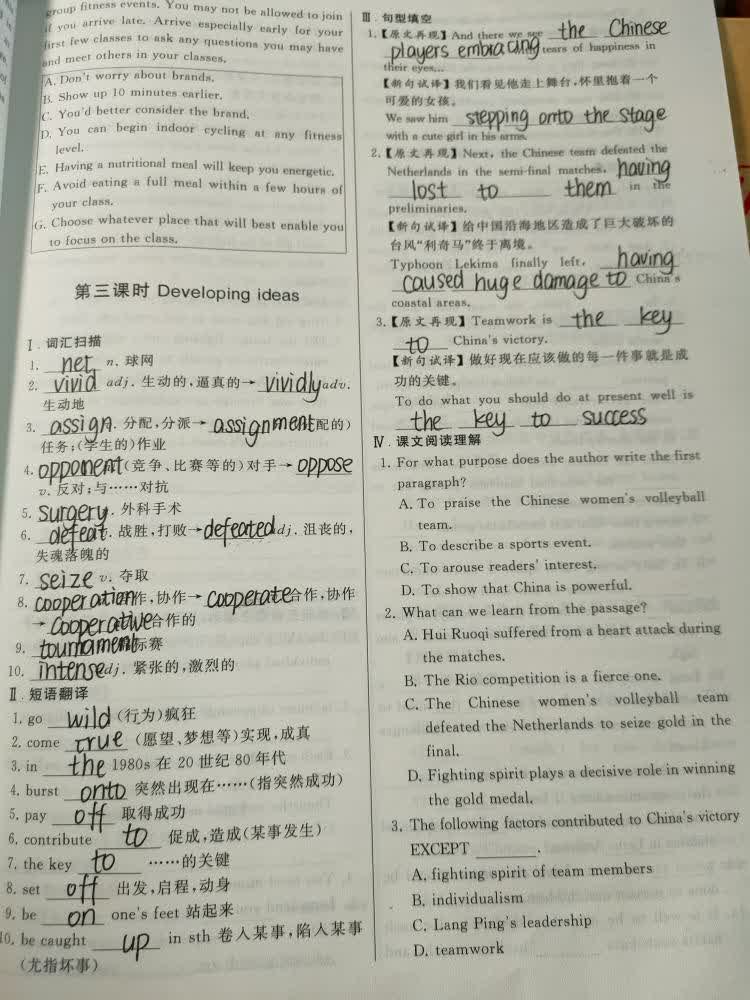 group fitness events. You may not be allowed to join
if you arrive late. Arrive especially early for your
first few classes to ask any questions you may have
and meet others in your classes.
A. Don't worry about brands.
B. Show up 10 minutes earlier.
C. You'd better consider the brand.
D. You can begin indoor cycling at any fitness
level.
E. Having a nutritional meal will keep you energetic.
F. Avoid eating a full meal within a few hours of
your class.
G. Choose whatever place that will best enable you
to focus on the class.
第三课时 Developing ideas
Ⅰ.词汇扫描
1. net n. 球网
2. vivid adj. 生动的,逼真的→ vividly adv.
生动地
3. assign . 分配,分派→ assignment 配的)
任务;(学生的)作业
4. opponent (竞争、比赛等的)对手→ oppose
v. 反对;与……对抗
5. surgery . 外科手术
6. defeat . 战胜,打败→ defeated dj. 沮丧的,
失魂落魄的
7. seize v. 夺取
8. cooperation 作,协作→ cooperate 合作,协作
→ cooperative 合作的
9. tournament 标赛
10. intense dj. 紧张的,激烈的
Ⅱ.短语翻译
1. go wild (行为)疯狂
2. come true (愿望、梦想等)实现,成真
3. in the 1980s 在 20 世纪 80 年代
4. burst onto 突然出现在……(指突然成功)
5. pay off 取得成功
6. contribute to 促成,造成(某事发生)
7. the key to ……的关键
8. set off 出发,启程,动身
9. be on one's feet 站起来
10. be caught up in sth 卷入某事,陷入某事
(尤指坏事)
Ⅲ.句型填空
1.【原文再现】And there we see the Chinese
players embracing tears of happiness in
their eyes...
【新句试译】我们看见他走上舞台,怀里抱着一个
可爱的女孩。
We saw him stepping onto the stage
with a cute girl in his arms.
2.【原文再现】Next, the Chinese team defeated the
Netherlands in the semi-final matches, having
lost to them in the
preliminaries.
【新句试译】给中国沿海地区造成了巨大破坏的
台风“利奇马”终于离境。
Typhoon Lekima finally left, having
caused huge damage to China's
coastal areas.
3.【原文再现】Teamwork is the key
to China's victory.
【新句试译】做好现在应该做的每一件事就是成
功的关键。
To do what you should do at present well is
the key to success
Ⅳ.课文阅读理解
1. For what purpose does the author write the first
paragraph?
A. To praise the Chinese women's volleyball
team.
B. To describe a sports event.
C. To arouse readers' interest.
D. To show that China is powerful.
2. What can we learn from the passage?
A. Hui Ruoqi suffered from a heart attack during
the matches.
B. The Rio competition is a fierce one.
C. The Chinese women's volleyball team
defeated the Netherlands to seize gold in the
final.
D. Fighting spirit plays a decisive role in winning
the gold medal.
3. The following factors contributed to China's victory
EXCEPT ______.
A. fighting spirit of team members
B. individualism
C. Lang Ping's leadership
D. teamwork